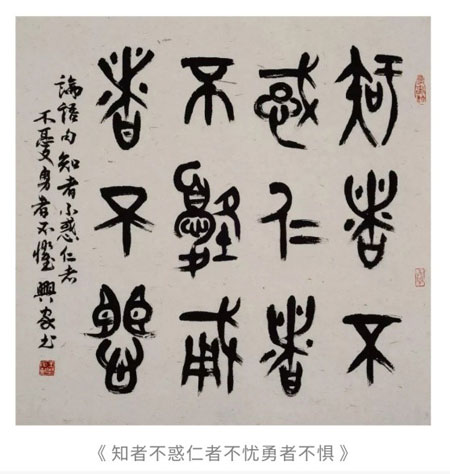 知者不
惑仁者
不憂勇
者不懼
論語句知者不惑仁者
不憂勇者不懼興家书
《 知者不惑仁者不忧勇者不惧 》